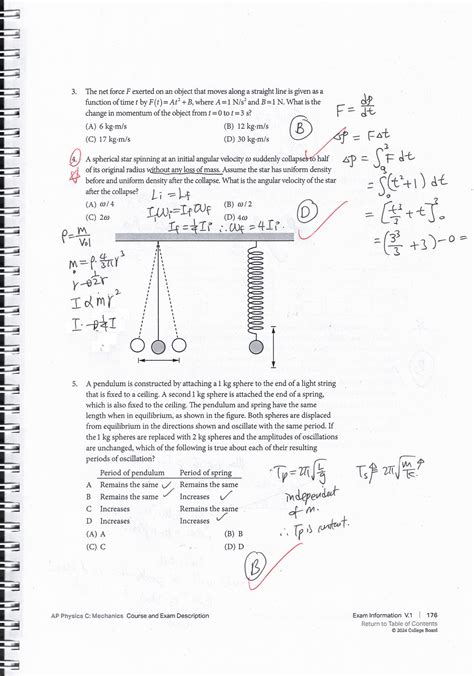 3. The net force F exerted on an object that moves along a straight line is given as a
function of time t by F(t) = At² + B, where A = 1 N/s² and B = 1 N. What is the
change in momentum of the object from t = 0 to t = 3 s?
(A) 6 kg·m/s (B) 12 kg·m/s
(C) 17 kg·m/s (D) 30 kg·m/s
B
F = dp/dt
Δp = FΔt
Δp = ∫₀³ F dt
= ∫(t²+1) dt
= [t³/3 + t]³₀
= (3³/3 + 3) - 0 =
4. A spherical star spinning at an initial angular velocity ω suddenly collapses to half
of its original radius without any loss of mass. Assume the star has uniform density
before and uniform density after the collapse. What is the angular velocity of the star
after the collapse?
(A) ω/4 (B) ω/2
(C) 2ω (D) 4ω
Li = Lf
Iiωi = Ifωf
If = ¼Ii ∴ωf = 4Ii
D
ρ = m/Vol
m = ρ·4/3πr³
I α mr²
5. A pendulum is constructed by attaching a 1 kg sphere to the end of a light string
that is fixed to a ceiling. A second 1 kg sphere is attached to the end of a spring,
which is also fixed to the ceiling. The pendulum and spring have the same
length when in equilibrium, as shown in the figure. Both spheres are displaced
from equilibrium in the directions shown and oscillate with the same period. If
the 1 kg spheres are replaced with 2 kg spheres and the amplitudes of oscillations
are unchanged, which of the following is true about each of their resulting
periods of oscillation?
Period of pendulum Period of spring
A Remains the same Remains the same
B Remains the same Increases
C Increases Remains the same
D Increases Increases
(A) A (B) B
(C) C (D) D
Tp = 2π√L/g
independent
of m.
∴ Tp is
Ts↑ 2π√m/k ↑
B
AP Physics C: Mechanics Course and Exam Description
Exam Information V.1 | 176
Return to Table of Contents
© 2024 College Board